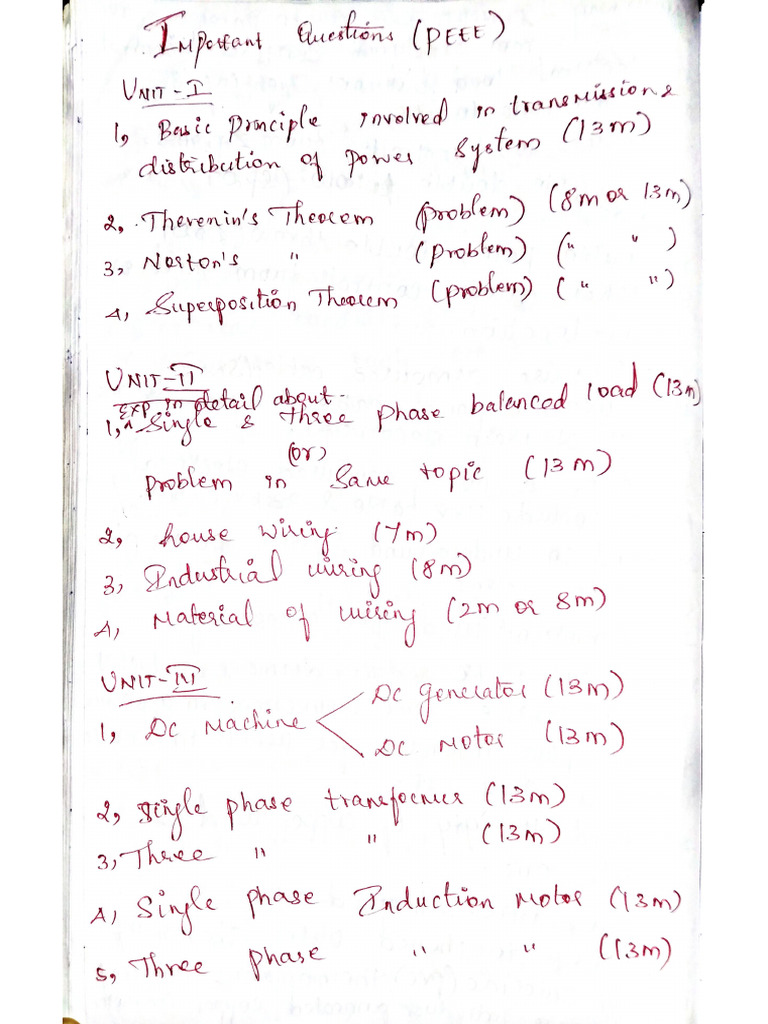 Important Questions (PEEE)
UNIT-I
1, Basic Principle involved in transmission &
distribution of power system (13m)
2, Thevenin's Theorem (problem) (8m or 13m)
3, Norton's " (problem) (" ")
4, Superposition Theorem (problem) (" ")
UNIT-II
Exp in detail about
1, Single & three phase balanced load (13m)
(or)
problem in Same topic (13m)
2, house wiring (7m)
3, Industrial wiring (8m)
4, Material of wiring (2m or 8m)
UNIT-III
1, DC Machine
DC Generator (13m)
DC Motor (13m)
2, Single phase transformer (13m)
3, Three " " (13m)
4, Single phase Induction Motor (13m)
5, Three phase " " (13m)